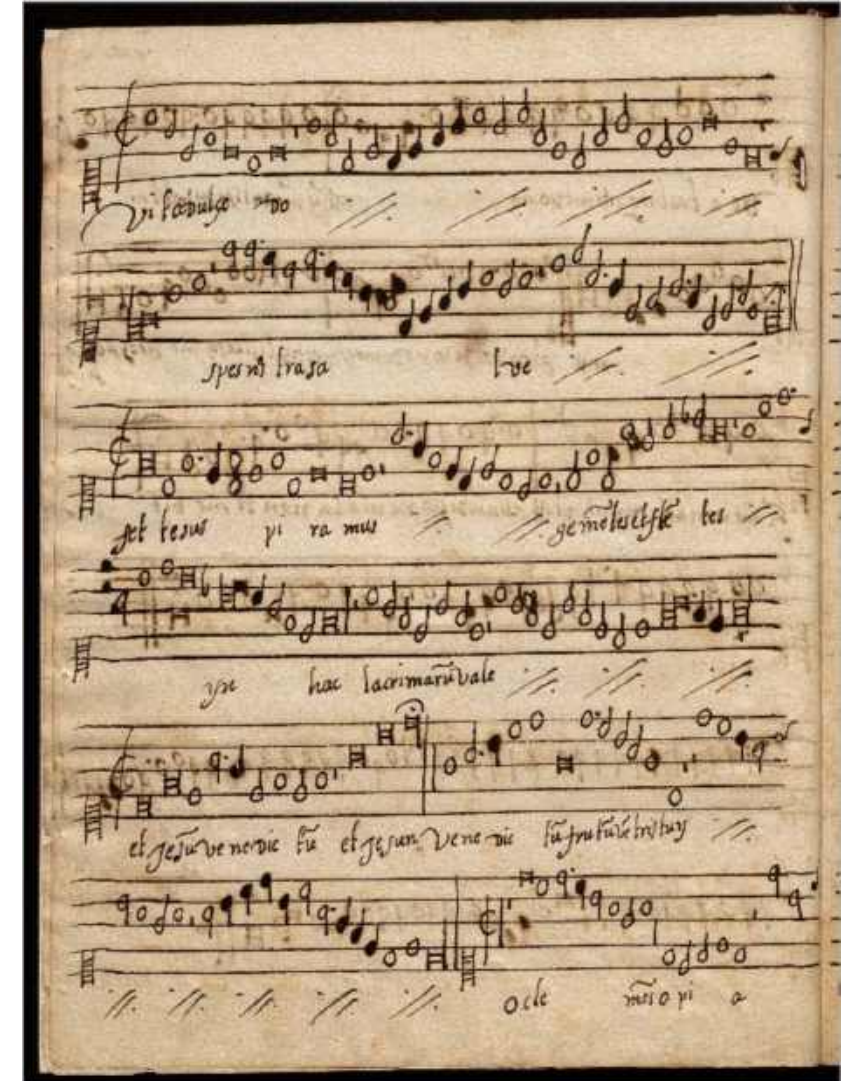 Vi ta dulçe do
spes nr̄ tra sa lve
Ad te sus pi ra mus gemētes et flē tes
yn hac lacrimarū vale
et Jesū venedic tū et Jesun Vene dic tū frutū vētris tuy
O cle mēs o pi a